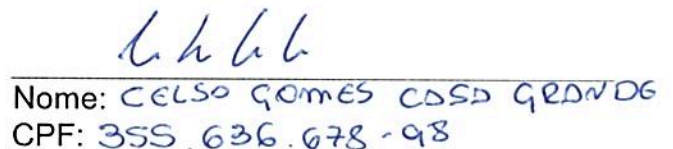 Nome: CELSO GOMES CASA GRANDE
CPF: 355.636.678-98